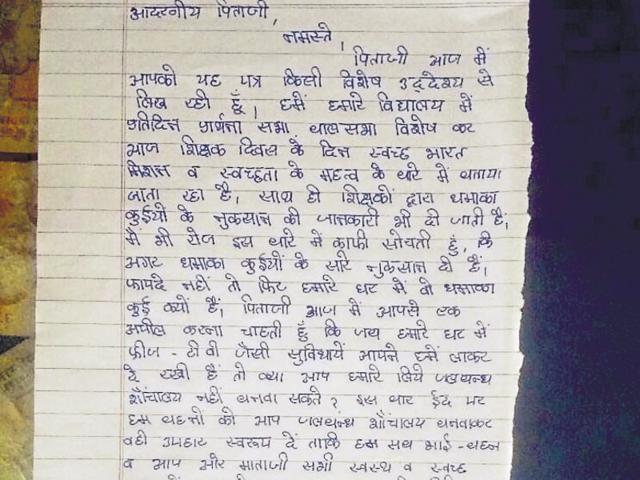 आदरनीय पिताजी,
नमस्ते,
पिताजी आज में
आपको यह पत्र किसी विशेष उद्देश्य से
लिख रही हूँ, हमें हमारे विद्यालय में
प्रतिदिन प्रार्थना सभा, बालसभा विशेष कर
आज शिक्षक दिवस के दिन स्वच्छ भारत
मिशन व स्वच्छता के महत्व के बारे में बताया
जाता रहा है, साथ ही शिक्षकों द्वारा धमाका
कुईयों के नुकसान की जानकारी भी दी जाती है,
मै भी रोज इस बारे में काफी सोचती हूँ, कि
अगर धमाका कुईयों के सारे नुकसान ही हैं,
फायदे नहीं तो फिर हमारे घर में वो धमाका
कुई क्यों है, पिताजी आज में आपसे एक
अपील करना चाहती हूँ कि जब हमारे घर में
फ्रीज - टी वी जैसी सुविधायें आपने हमें लाकर
दे रखी हैं तो क्या आप हमारे लिये जलबन्ध
शौंचालय नहीं बनवा सकते? इस बार ईद पर
हम बहनो को आप जलबंध शौंचालय बनवाकर
वही उपहार स्वरूप दें ताकि हम सब भाई-बहन
व आप और माताजी सभी स्वस्थ व स्वच्छ